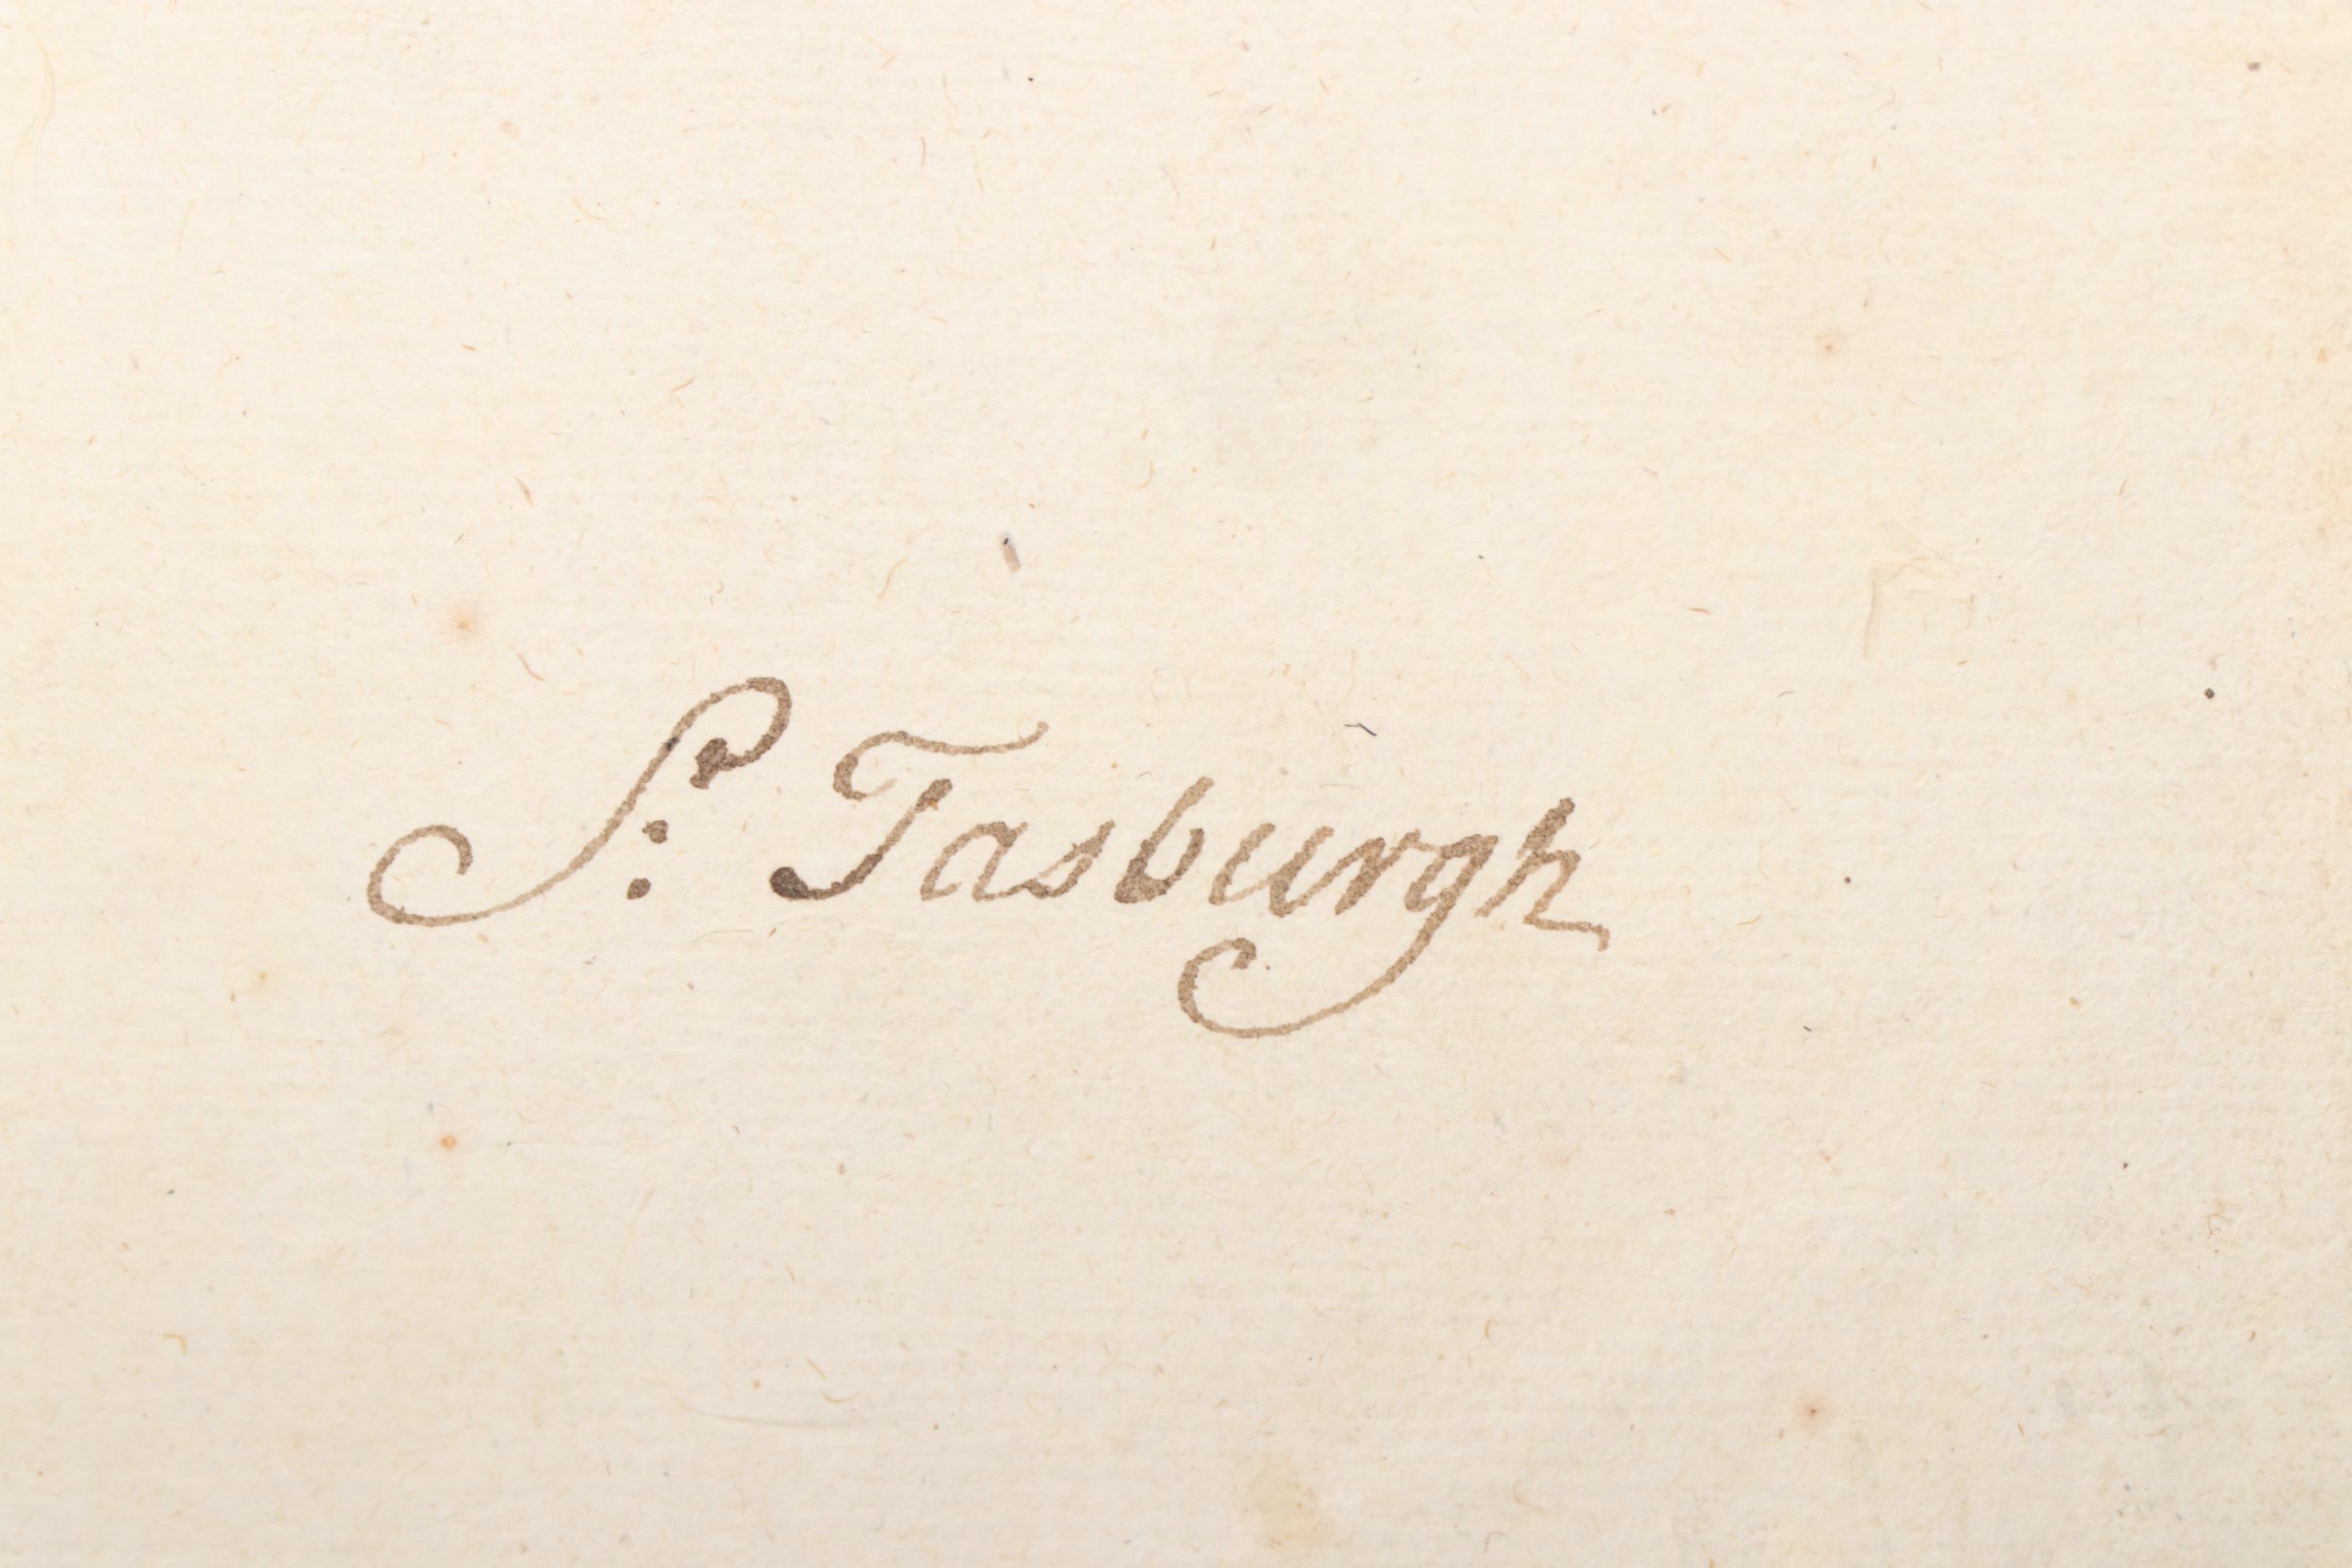 S: Tasburgh